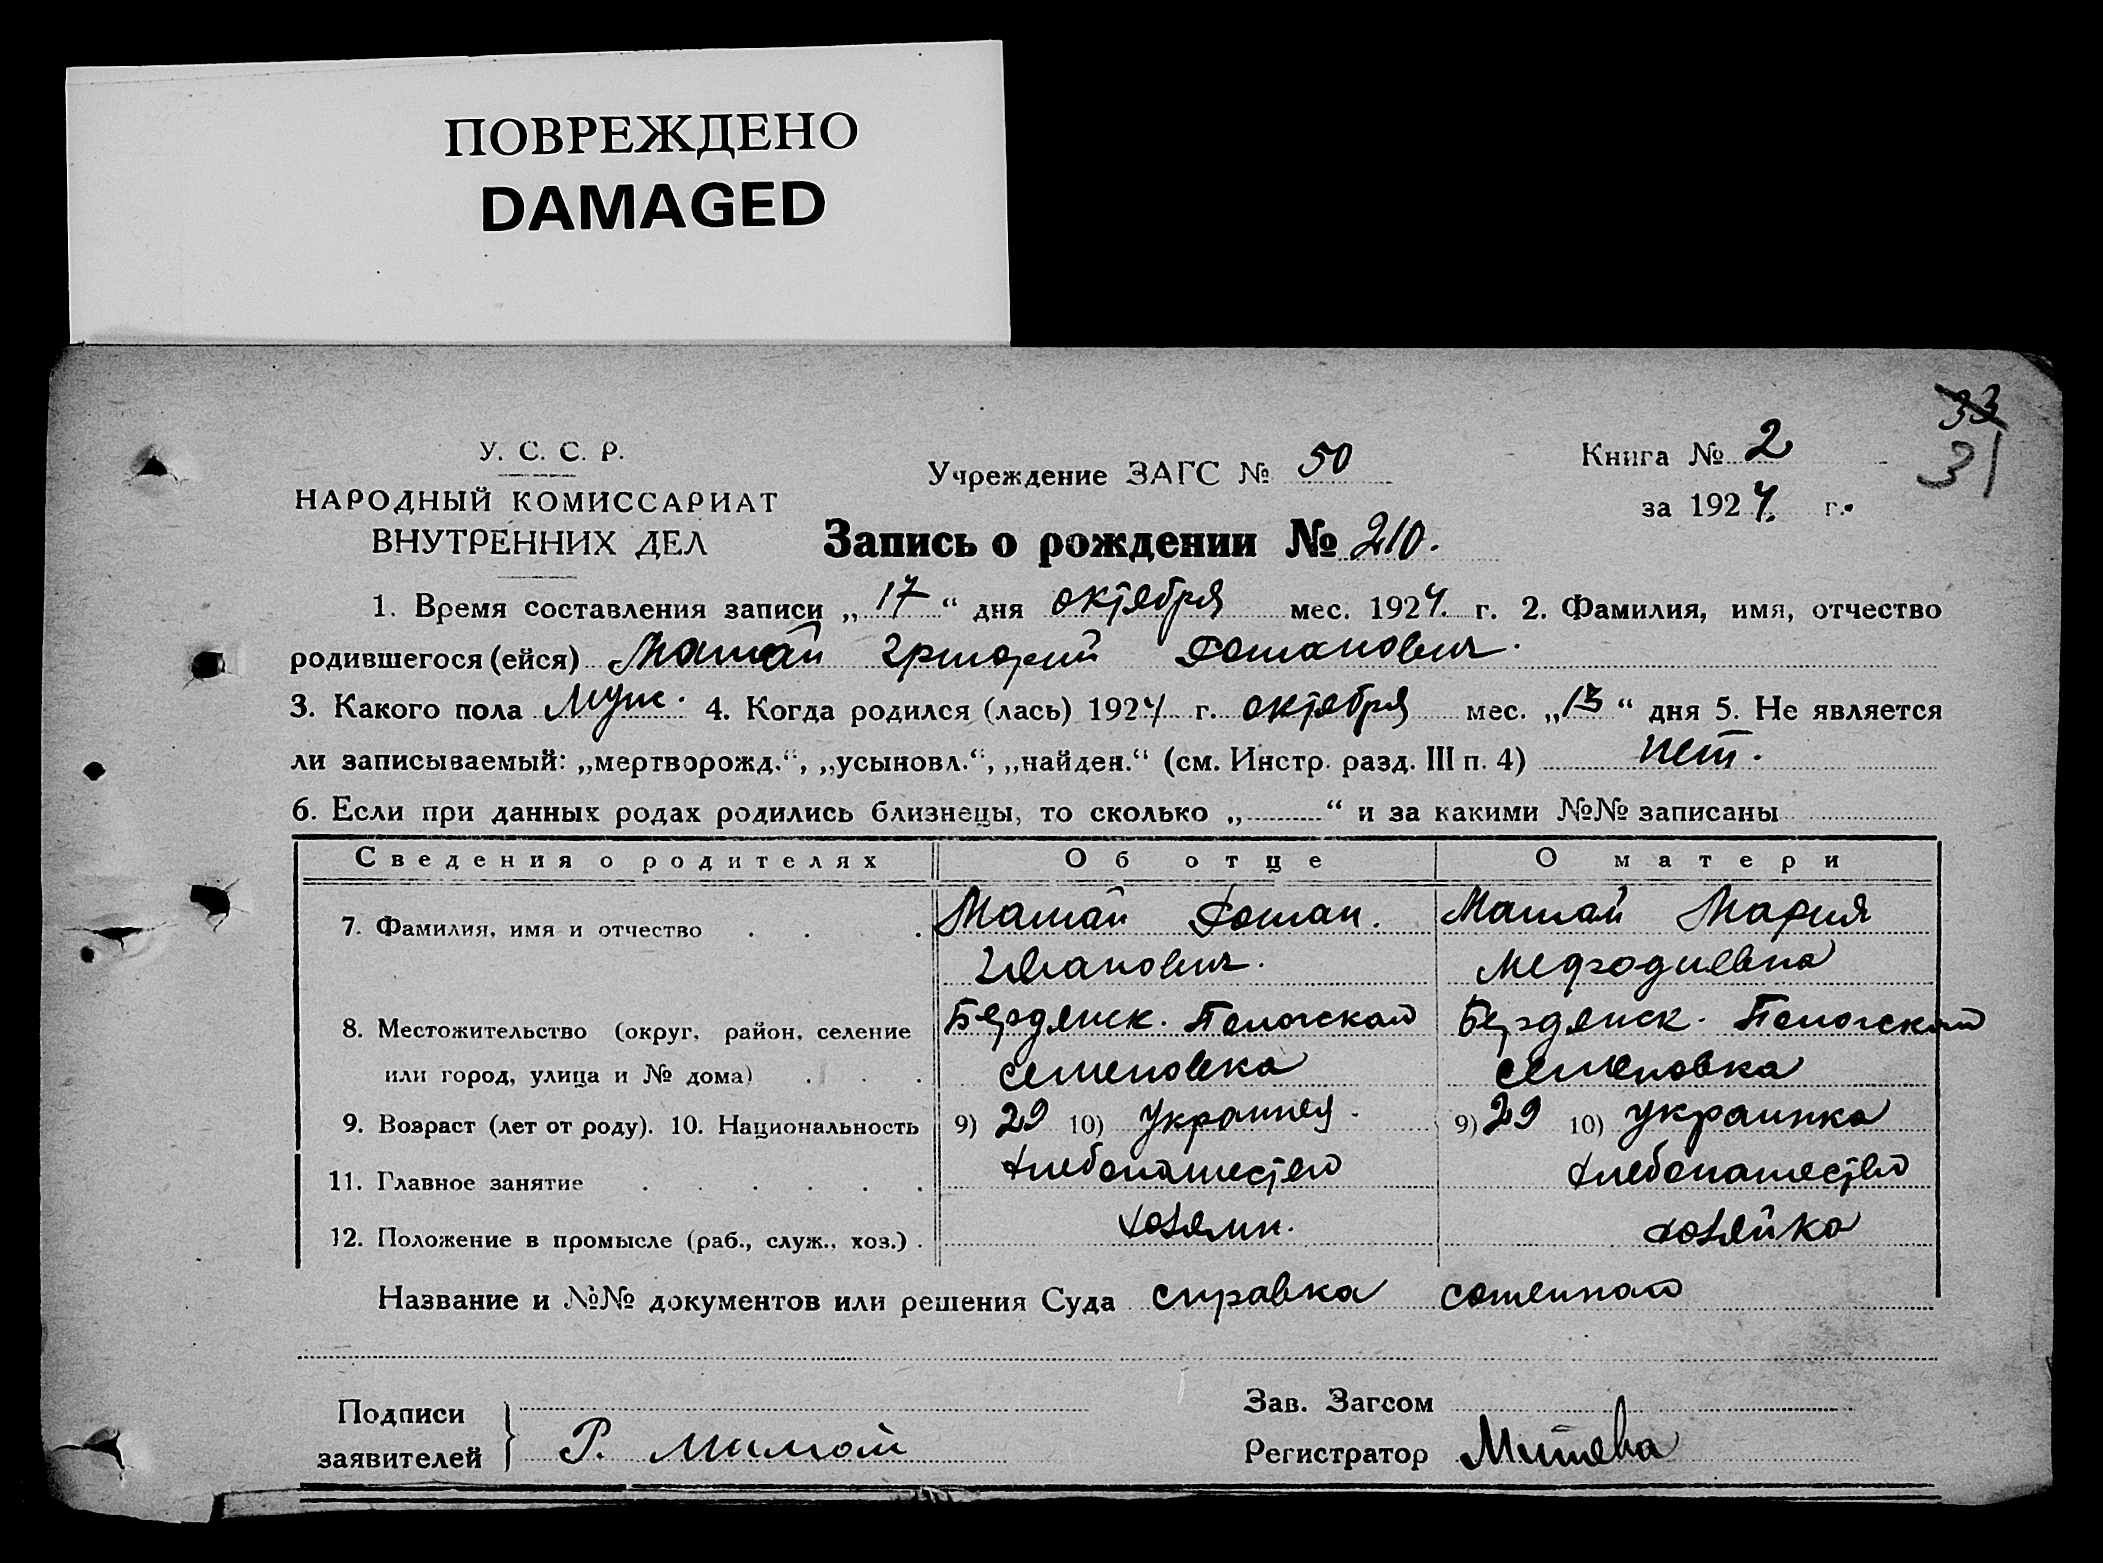 ПОВРЕЖДЕНО
DAMAGED
33
31
У. С. С. Р.
НАРОДНЫЙ КОМИССАРИАТ
ВНУТРЕННИХ ДЕЛ
Учреждение ЗАГС № 50
Книга № 2
за 1924 г.
Запись о рождении № 210.
1. Время составления записи „17“ дня октября мес. 1924 г. 2. Фамилия, имя, отчество
родившегося (ейся) Мамай Григорий Романович.
3. Какого пола муж. 4. Когда родился (лась) 1924 г. октября мес. „13“ дня 5. Не является
ли записываемый: „мертворожд.“, „усыновл.“, „найден.“ (см. Инстр. разд. III п. 4) нет.
6. Если при данных родах родились близнецы, то сколько „ “ и за какими №№ записаны
Сведения о родителях Об отце О матери
7. Фамилия, имя и отчество Мамай Роман. Мамай Мария
Иванович. Мефодиевна
8. Местожительство (округ, район, селение Бердянск. Пологской Бердянск. Пологской
или город, улица и № дома) Семеновка Семеновка
9. Возраст (лет от роду). 10. Национальность 9) 29 10) Украинец. 9) 29 10) украинка
11. Главное занятие хлебопашество хлебопашество
12. Положение в промысле (раб., служ., хоз.) хозяин. хозяйка
Название и №№ документов или решения Суда справка
Подписи
заявителей Р. Мамай
Зав. Загсом
Регистратор